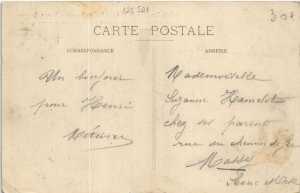 125 521
30€
CARTE POSTALE
CORRESPONDANCE
ADRESSE
Un bonjour
pour Henri
Mademoiselle
Suzanne Hamelot
chez ses parents
rue du chemin de
Massy
Seine et Oise